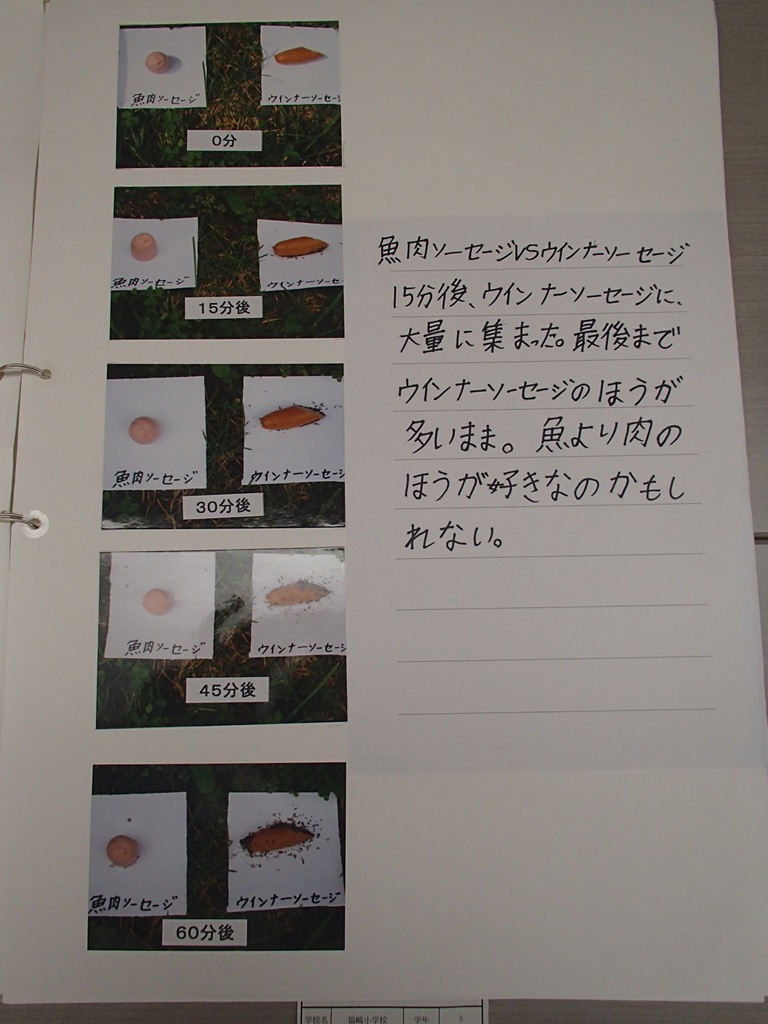 魚肉ソーセージ
ウインナーソーセージ
0分
魚肉ソーセージ
ウインナーソーセージ
15分後
魚肉ソーセージ
ウインナーソーセージ
30分後
魚肉ソーセージ
ウインナーソーセージ
45分後
魚肉ソーセージ
ウインナーソーセージ
60分後
魚肉ソーセージVSウインナーソーセージ
15分後、ウインナーソーセージに、
大量に集まった。最後まで
ウインナーソーセージのほうが
多いまま。魚より肉の
ほうが好きなのかもし
れない。
学校名 福崎小学校 学年 5